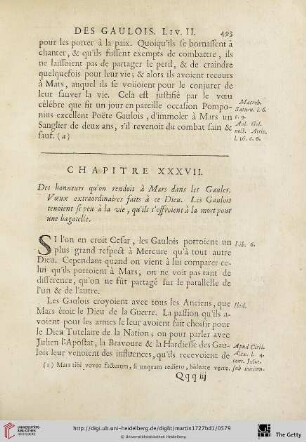 DES GAULOIS. LIV. II. 493
pour les porter à la paix. Quoiqu'ils se bornassent à
chanter, & qu'ils fussent exempts de combattre, ils
ne laissoient pas de partager le peril, & de craindre
quelquefois pour leur vie; & alors ils avoient recours
à Mars, auquel ils se voüoient pour le conjurer de
leur sauver la vie. Cela est justifié par le vœu
célebre que fit un jour en pareille occasion Pompo-
nius excellent Poëte Gaulois, d'immoler à Mars un
Sanglier de deux ans, s'il revenoit du combat sain &
sauf. (a)
Macrob.
Saturn. l. 6.
c. 9.
Aul. Gel.
noct. Attic.
l. 16. c. 6.
CHAPITRE XXXVII.
Des honneurs qu'on rendoit à Mars dans les Gaules.
Vœux extraordinaires faits à ce Dieu. Les Gaulois
tenoient si peu à la vie, qu'ils s'offroient à la mort pour
une bagatelle.
SI l'on en croit Cesar, les Gaulois portoient un
plus grand respect à Mercure qu'à tout autre
Dieu. Cependant quand on vient à lui comparer ce-
lui qu'ils portoient à Mars, on ne voit pas tant de
difference, qu'on ne fût partagé sur le parallelle de
l'un & de l'autre.
Lib. 6.
Les Gaulois croyoient avec tous les Anciens, que
Mars étoit le Dieu de la Guerre. La passion qu'ils a-
voient pour les armes le leur avoient fait choisir pour
le Dieu Tutelaire de la Nation; ou pour parler avec
Julien l'Apostat, la Bravoure & la Hardiesse des Gau-
lois leur venoient des influences, qu'ils recevoient de
Ibid.
Apud Ciril.
Alex. l. 4.
cont. Julia.
(a) Mars tibi voveo facturum, si unquam redierit, bidente verre.
Qqq iij
http://digi.ub.uni-heidelberg.de/diglit/martin1727bd1/0579
© Universitätsbibliothek Heidelberg